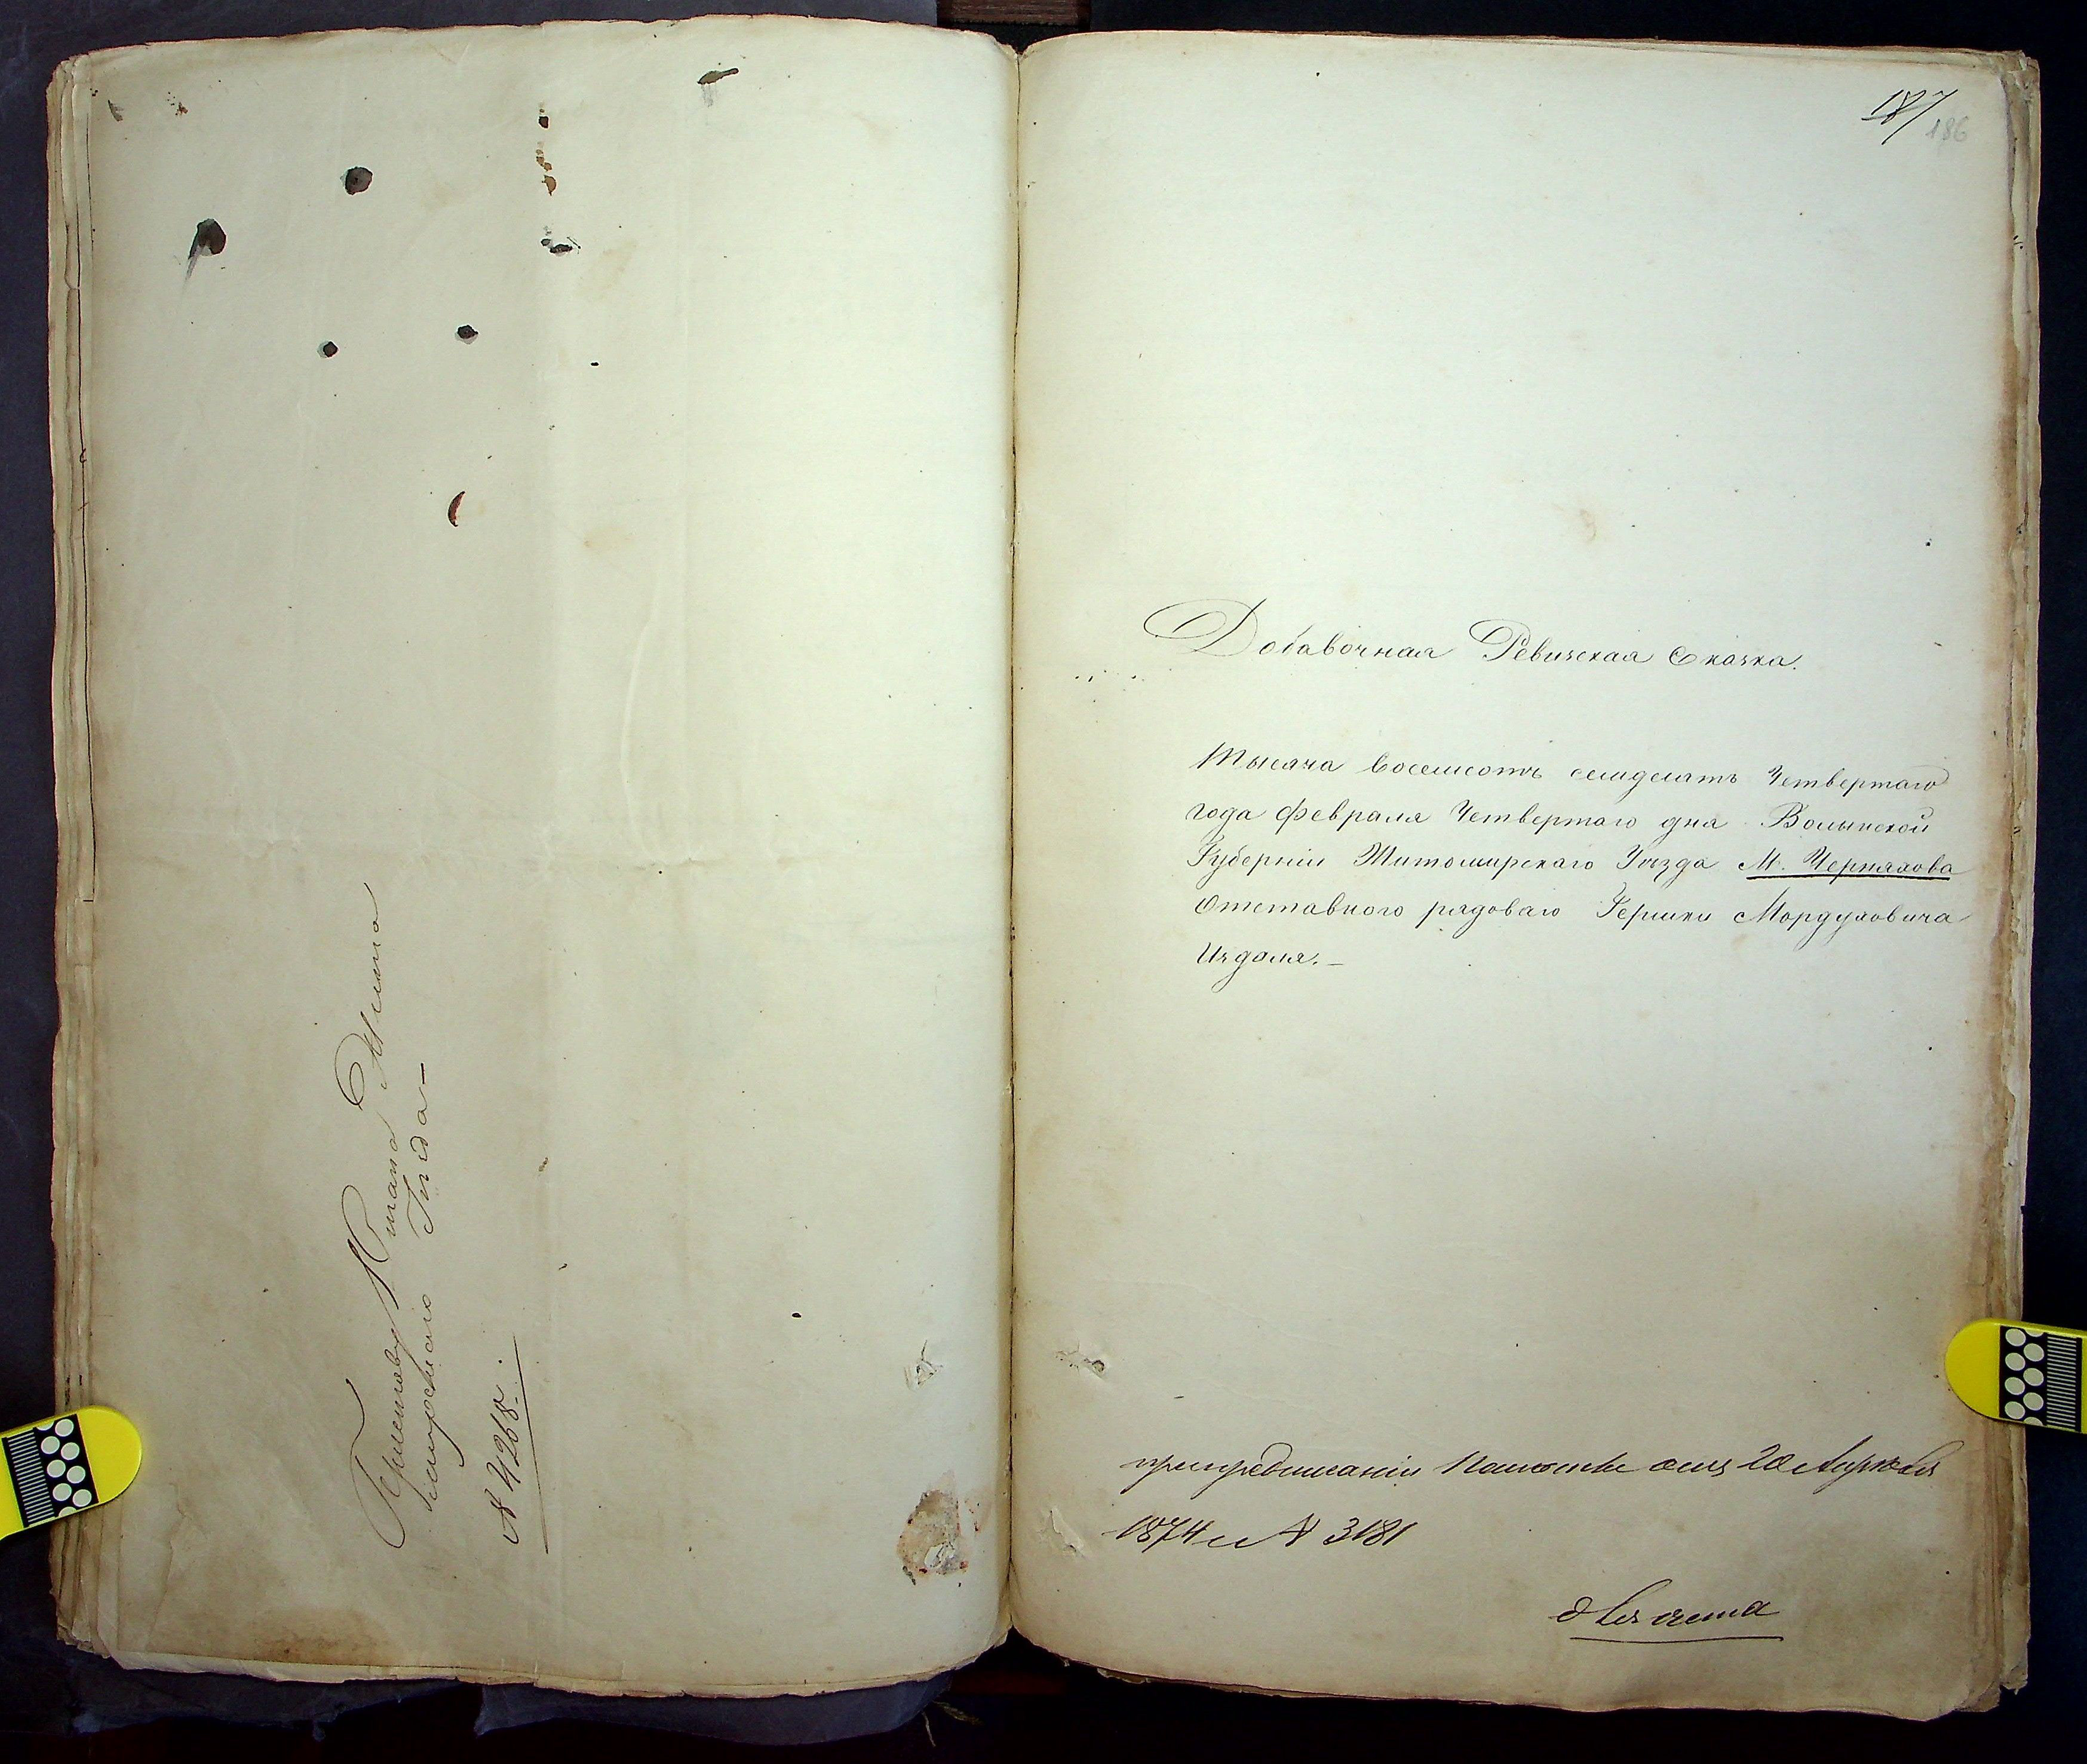 № 4268.
187
186
Добавочная Ревизская Сказка.
Тысяча восемсотъ семдесятъ Четвертаго
года февраля Четвертаго дня Волынской
Губерніи Житомирскаго Уѣзда М. Черняхова
Отставного рядоваго Гершки Мордуховича
Изделя.—
при предписаніи Палаты отъ 20 Апрѣля
1874 г № 3181
для счета